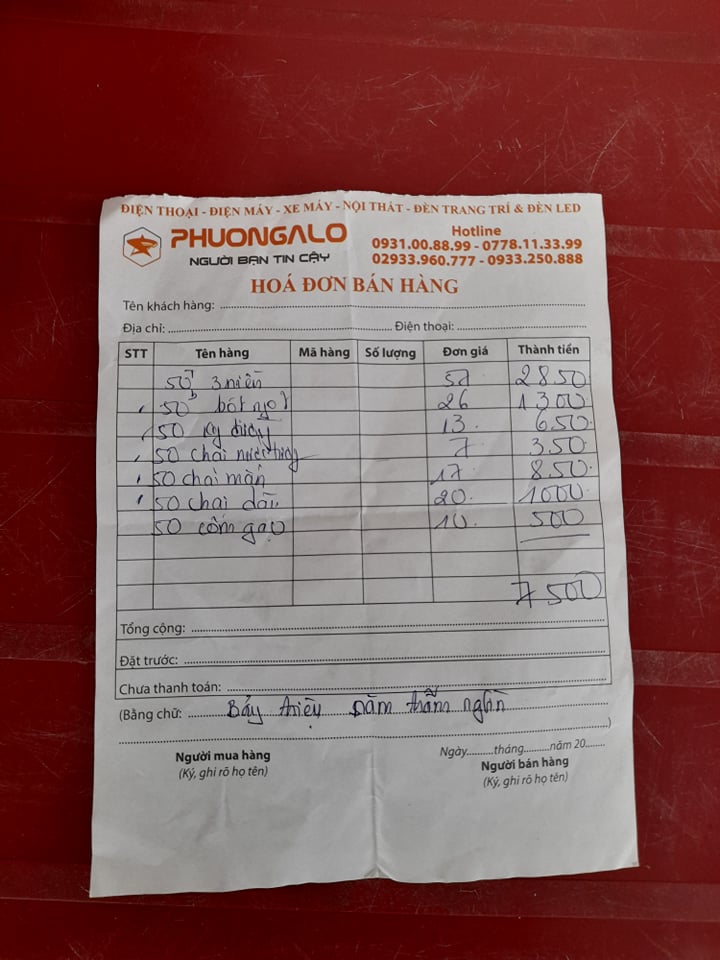 ĐIỆN THOẠI - ĐIỆN MÁY - XE MÁY - NỘI THẤT - ĐÈN TRANG TRÍ & ĐÈN LED
PHUONGALO
NGƯỜI BẠN TIN CẬY
Hotline
0931.00.88.99 - 0778.11.33.99
02933.960.777 - 0933.250.888
HOÁ ĐƠN BÁN HÀNG
Tên khách hàng:
Địa chỉ: Điện thoại:
STT Tên hàng Mã hàng Số lượng Đơn giá Thành tiền
50 3 miền 57 2850
50 bột ngọt 26 1300
50 kg đường 13 650
50 chai nước tương 7 350
50 chai mắm 17 850
50 chai dầu 20 1000
50 cốm gạo 10 500
7500
Tổng cộng:
Đặt trước:
Chưa thanh toán:
(Bằng chữ: Bảy triệu năm trăm nghìn
)
Ngày tháng năm 20
Người mua hàng Người bán hàng
(Ký, ghi rõ họ tên) (Ký, ghi rõ họ tên)